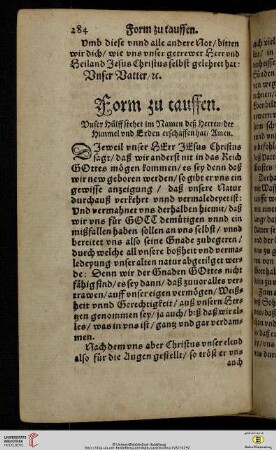 284 Form zu tauffen.
Vmb diese vnnd alle andere Not / bitten
wir dich / wie vns vnser getrewer Herr vnd
Heiland Jesus Christus selbst gelehret hat:
Vnser Vatter / ꝛc.
Form zu tauffen.
Vnser Hülff stehet im Namen deß Herren / der
Himmel vnd Erden erschaffen hat / Amen.
DJeweil vnser HErr JEsus Christus
sagt / daß wir anderst nit in das Reich
GOttes mögen kommen / es sey denn daß
wir new geboren werden / so gibt er vns ein
gewisse anzeigung / daß vnsere Natur
durchauß verkehrt vnnd vermaledeyet ist:
Vnd vermahnet vns derhalben hiemit / daß
wir vns für GOTT demütigen vnnd ein
mißfallen haben sollen an vns selbst / vnnd
bereitet vns also seine Gnade zubegeren /
durch welche all vnsere boßheit vnd verma-
ledeyung vnser alten natur abgetilget wer-
de: Denn wir der Gnaden GOttes nicht
fähig sind / es sey dann / daß zuuor alles ver-
trawen / auff vnser eigen vermögen / Weiß-
heit vnnd Gerechtigkeit / auß vnsern Her-
tzen genommen sey / ja auch / biß daß wir al-
les / was in vns ist / gantz vnd gar verdam-
men.
Nachdem vns aber Christus vnser elend
also für die Augen gestellt / so tröst er vns
auch